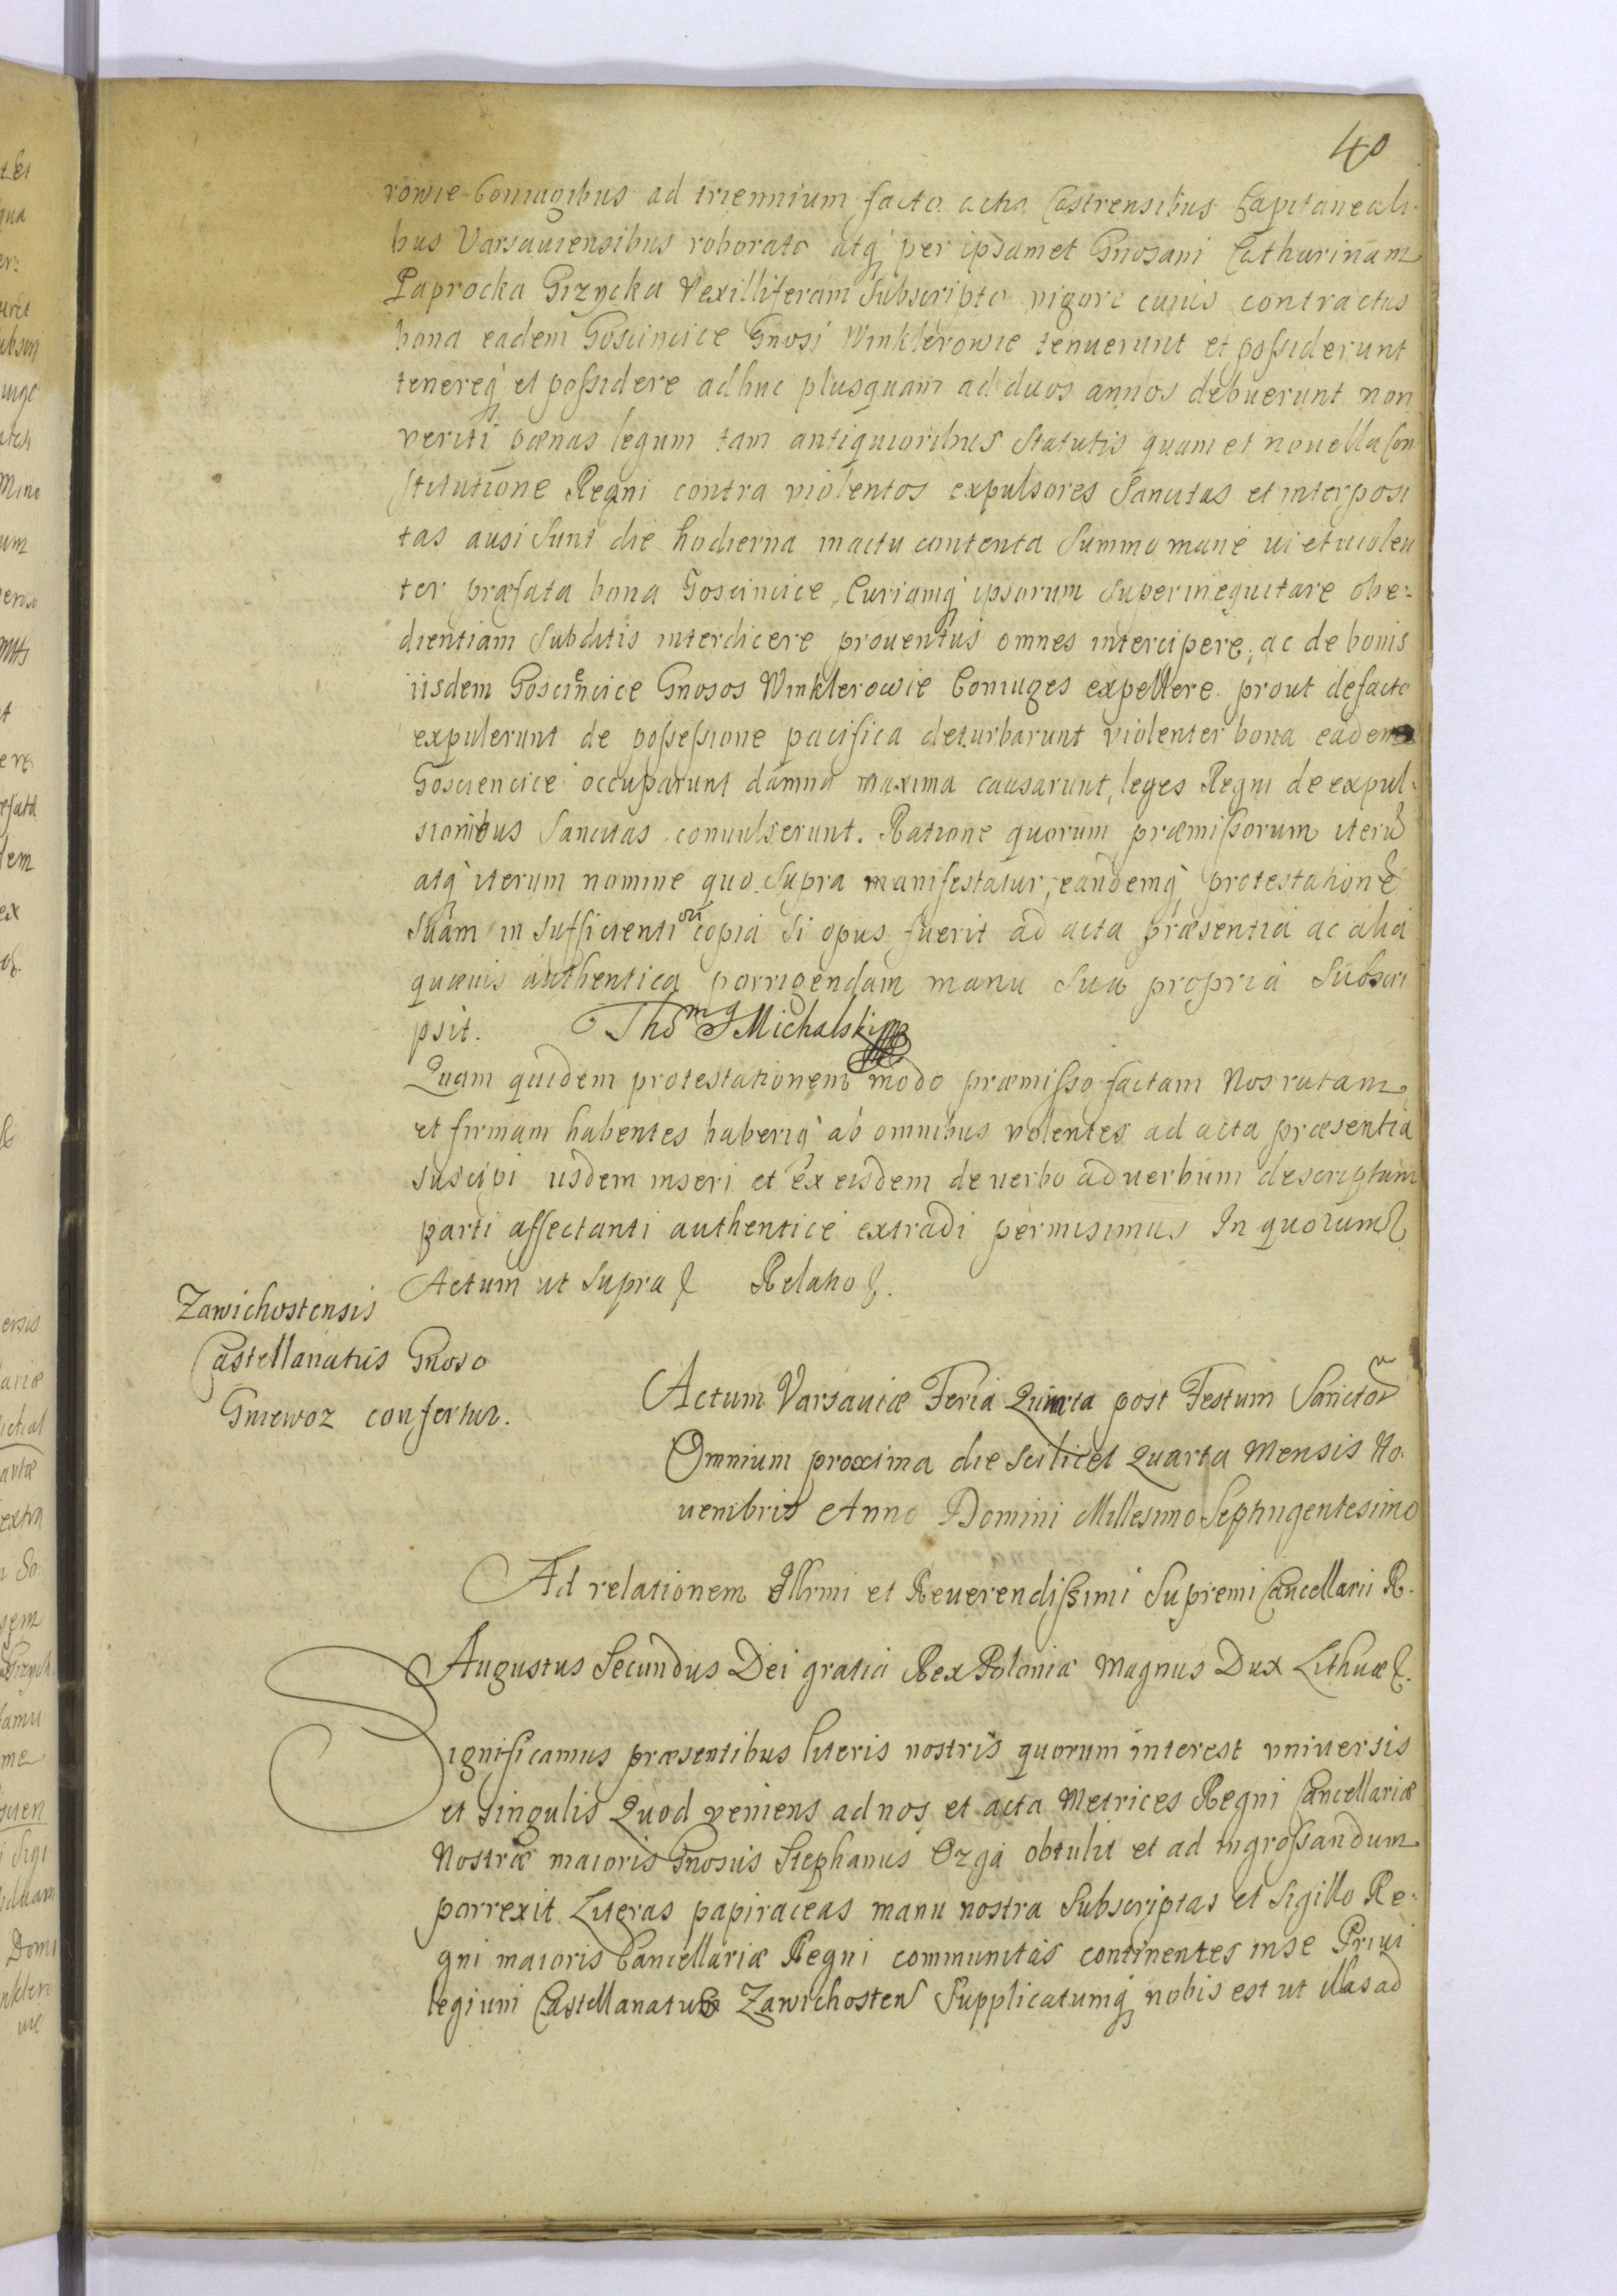 40
rowie Coniugibus ad triennium facto actis Castrensibus Capitaneali-
bus Varsauiensibus roborato atq per ipsamet Gnosam Catharinam
Paprocka Grzycka Vexilliferam Subscripto vigore cuius contractus
bona eadem Gosciencice Gnosi Winklerowie tenuerunt et possiderunt
tenereq et possidere adhuc plusquam ad duos annos debuerunt non
veriti pœnas legum tam antiquioribus Statutis quam et nouella Con
stitutione Regni contra violentos expulsores Sancitas et interposi
tas ausi Sunt die hodierna in actu contenta Summo mane ui et uiolen
ter præfata bona Goscincice, Curiamq ipsorum Superinequitare obe-
dientiam Subditis interdicere prouentus omnes intercipere, ac de bonis
iisdem Gosciencice Gnosos Winklerowie Coniuges expellere prout defacto
expulerunt de possessione pacifica deturbarunt violenter bona eadem
Gosciencice occuparunt damna maxima causarunt, leges Regni de expul-
sionibus Sancitas conuulserunt. Ratione quorum præmissorum iterū
atq iterum nomine quo Supra manifestatur, eandemq protestationē
Suam in Sufficientiori copia Si opus fuerit ad acta præsentia ac alia
quæuis authentica porrigendam manu Sua propria Subscri
psit. Thomg Michalski mp
Quam quidem protestationem modo præmisso factam Nos ratam
et firmam habentes haberiq ab omnibus volentes ad acta præsentia
suscipi iisdem inseri et ex eisdem de uerbo ad uerbum descriptum
parti affectanti authentice extradi permisimus In quorum &
Actum ut Supra & Relatio &.
Zawichostensis
Castellanatus Gnoso
Gniewoz confertur.
Actum Varsauiæ Feria Quinta post Festum Sanctor
Omnium proxima die Scilicet Quarta Mensis No-
uembris Anno Domini Millesimo Septingentesimo
Ad relationem Illrmi et Reuerendissimi Supremi Cancellarii R.
Augustus Secundus Dei gratia Rex Poloniæ Magnus Dux Lithuæ &.
Significamus præsentibus literis nostris quorum interest vniuersis
et singulis Quod veniens ad nos et acta Metrices Regni Cancellariæ
Nostræ maioris Gnosus Stephanus Ozga obtulit et ad ingrossandum
porrexit Literas papiraceas manu nostra Subscriptas et Sigillo Re-
gni maioris Cancellariæ Regni communitas continentes in se Priui
legium Castellanatus Zawichosten Supplicatumq nobis est ut illas ad